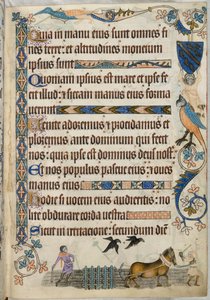 Quia in manu eius sunt omnes fi
nes terre: et altitudines moncium
ipsius sunt
Quoniam ipsius est mare et ipse fe
cit illud: et siccam manus eius forma
uerunt
Uenite adoremus et procidamus et
ploremus ante dominum qui fecit
nos: quia ipse est dominus deus nost
Et nos populus pascue eius: et oues
manus eius
Hodie si uocem eius audieritis: no
lite obdurare corda uestra
Sicut in irritacione: secundum diem